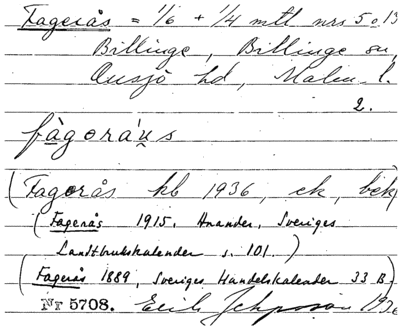 Fagerås = 1/6 + 1/4 mtl nrs 5 o 13
Billinge, Billinge sn,
Onsjö hd, Malm. l.
2.
fàgorá'u̯s
(Fagerås kb 1936, ek, bek)
(Fagerås 1915. Anander, Sveriges
Landtbrukskalender s. 101.)
(Fagerås 1889, Sveriges Handelskalender 33 B)
Nr 5708. Erik 193